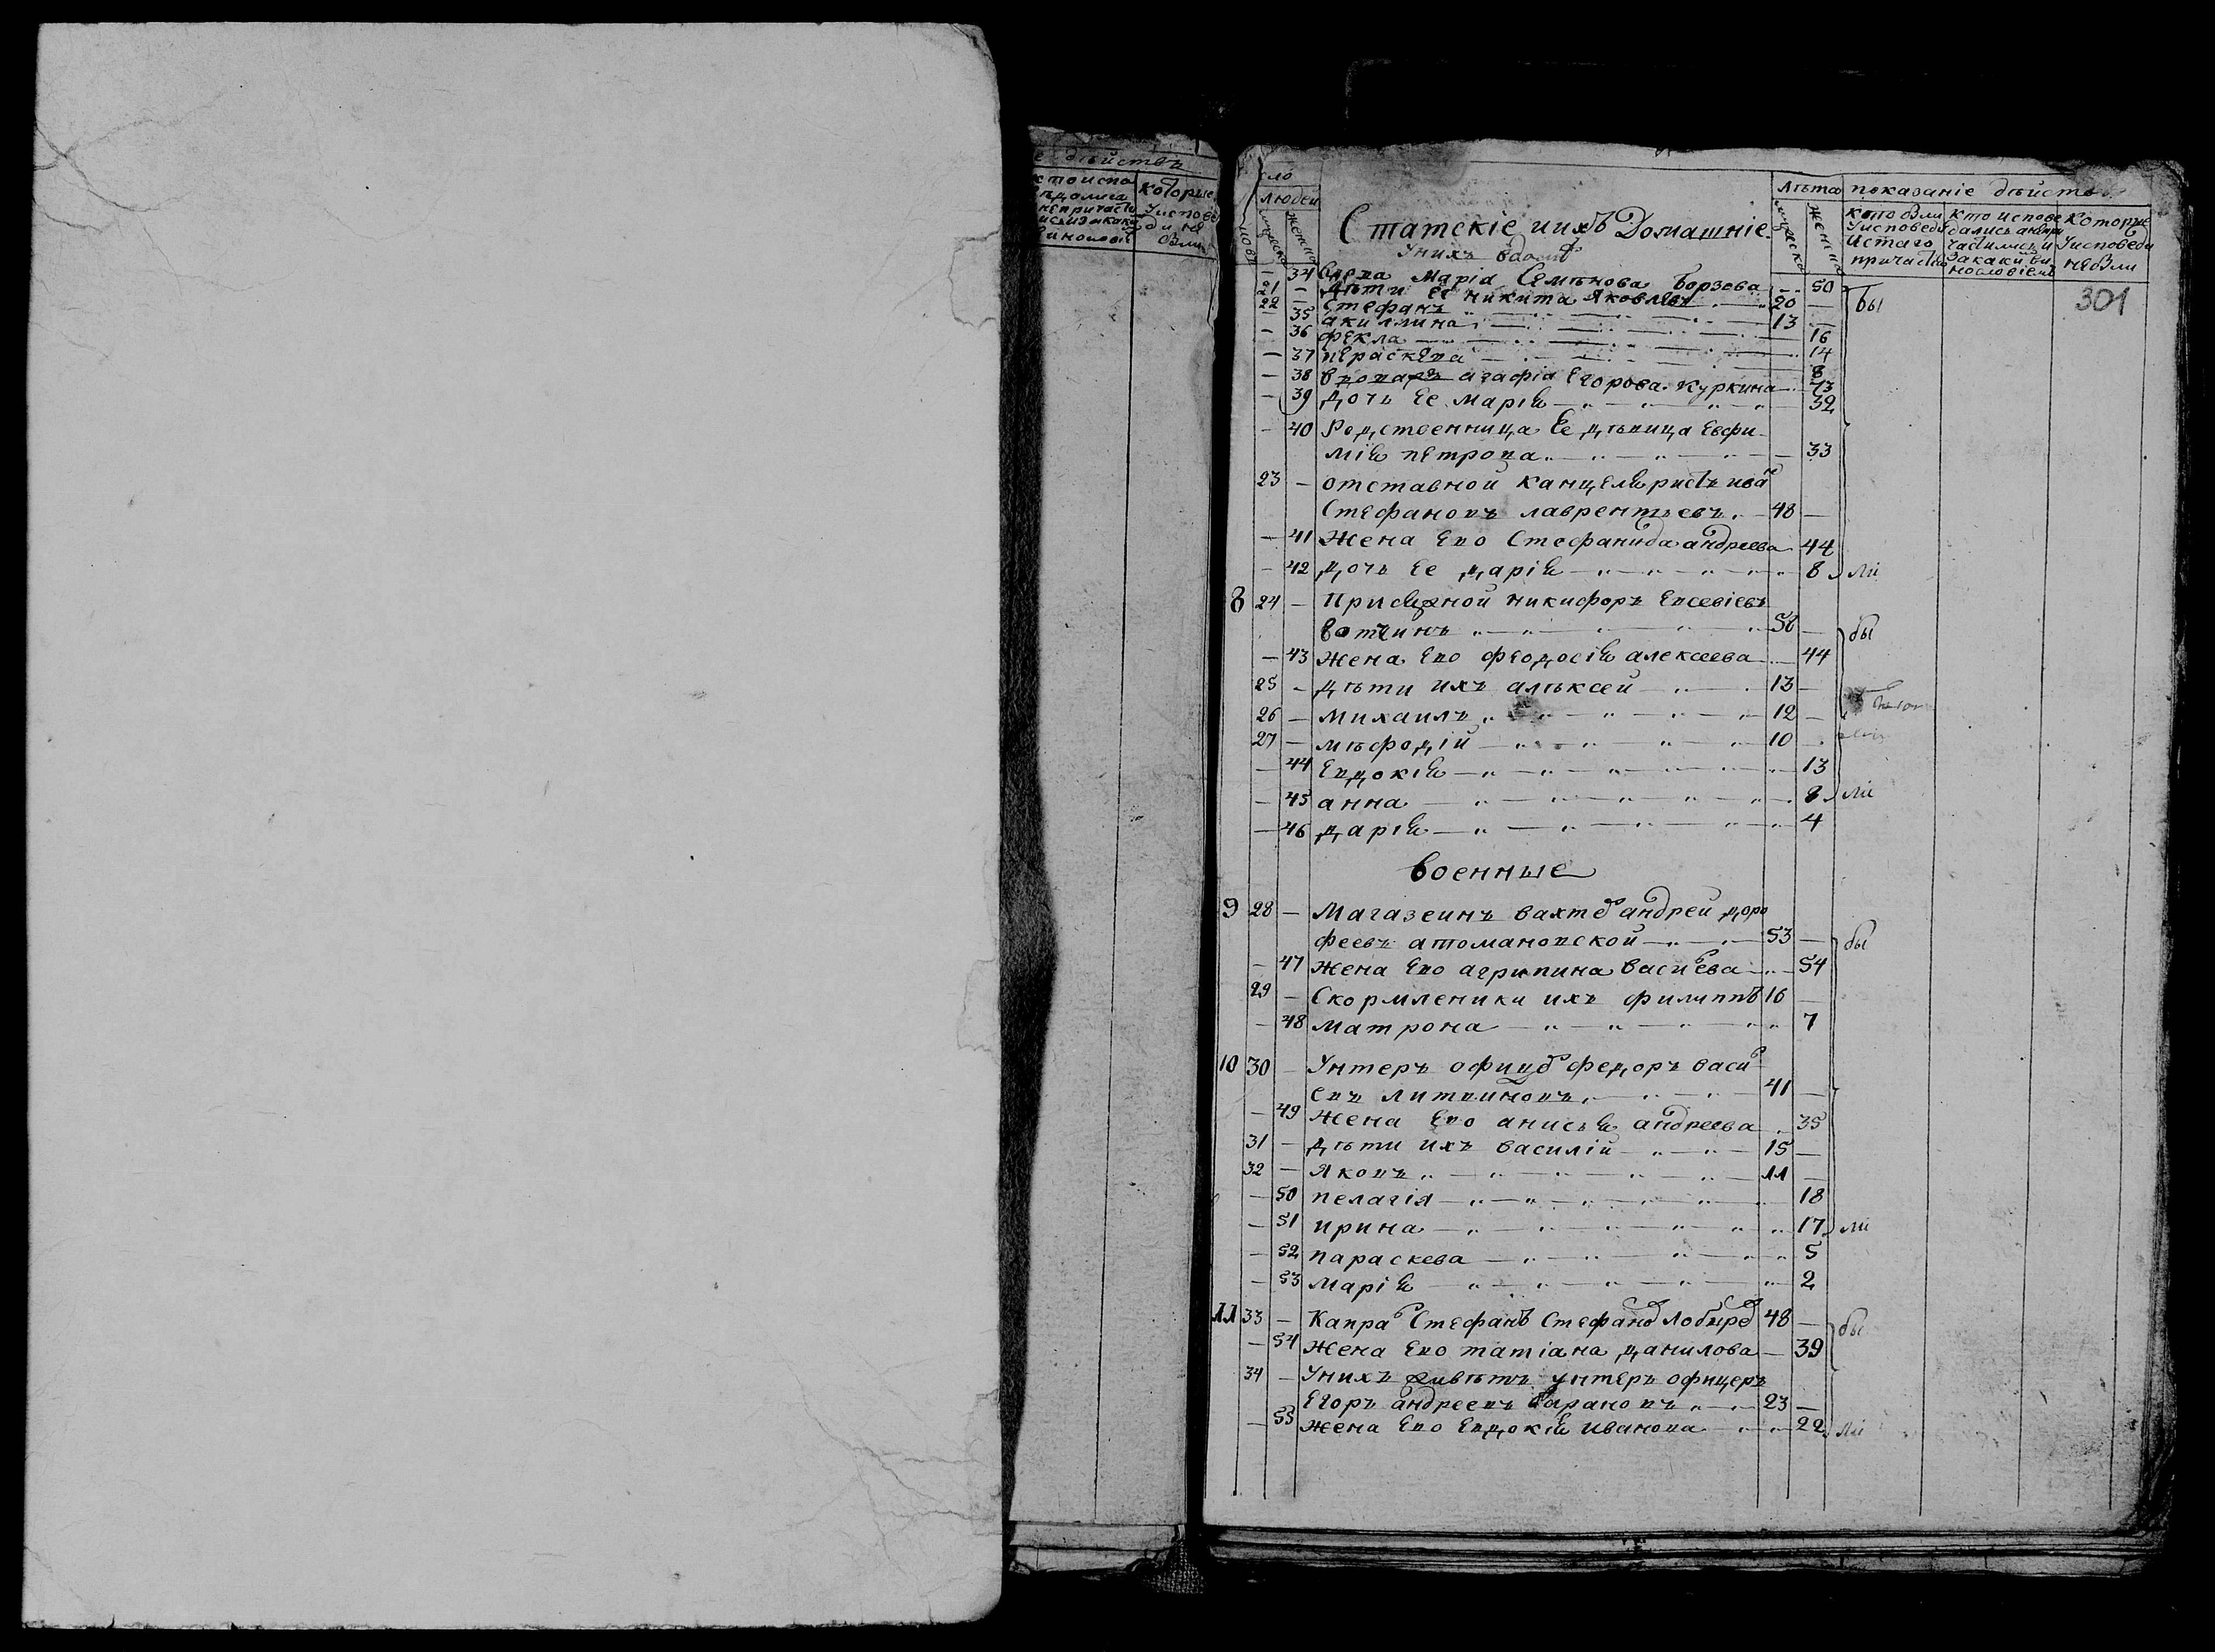 е дѣйствъ
Которые
Уиспове
ди не
были
сло
людей
Лѣта показаніе дѣйств
мужеска женска
Статскіе иихъ Домашніе
кто были Уисповеди истаго причастія
кто испове дались анепри частились и закаки ви нословіемъ
Которые Уисповеди небыли
Унихъ вдом
301
— 34 вдова Марія Семѣнова борзова — 50
21 — дѣти Ее никита Яковлевъ 20 — бы
22 — Стефанъ 13 —
— 35 акиллина 16
— 36 фекла 14
— 37 пераскева 8
— 38 Агафія Егорова куркина 73
— 39 дочь Ее Марія 32
— 40 Родственница Ее дѣвица Евфи
мія петрова — 33
23 — отставной канцеляристъ ива
Стефановъ лаврентьевъ 48 —
— 41 Жена Ево Стефанида андреева 44
— 42 дочь Ее дарія 8 ли
8 24 — Присяжной никифоръ Евсевіевъ
56 — бы
— 43 Жена Ево феодосія алексеева 44
25 — дѣти ихъ алѣксей 13 —
26 — михаилъ 12 —
27 — мѣфодій 10
— 44 Евдокія 13
— 45 анна 8 ли
— 46 дарія 4
военные
9 28 — Магазеинъ вахте андрей доро
феевъ атомановской 53 — бы
— 47 жена Ево агрипина васиева 54
29 — Скормленики ихъ филиппъ 16 —
— 48 матрона 7
10 30 — Унтеръ офице федоръ васи
евъ литвиновъ 41 —
— 49 жена Ево анисья андреева 35
31 — дѣти ихъ василій 15 —
32 — Яковъ 11 —
— 50 пелагія 18
— 51 ирина 17 ли
— 52 параскева 5
— 53 марія 2
11 33 — Капра Стефанъ Стефано 48 — бы
— 54 жена Ево татіана данилова 39
34 — Унихъ живѣтъ унтеръ офицеръ
Егоръ андреевъ барановъ 23 —
— 55 жена Ево Евдокія иванова 22 ли